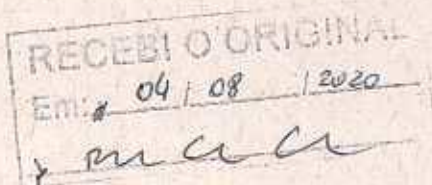 RECEBI O ORIGINAL
Em: 04 / 08 / 2020